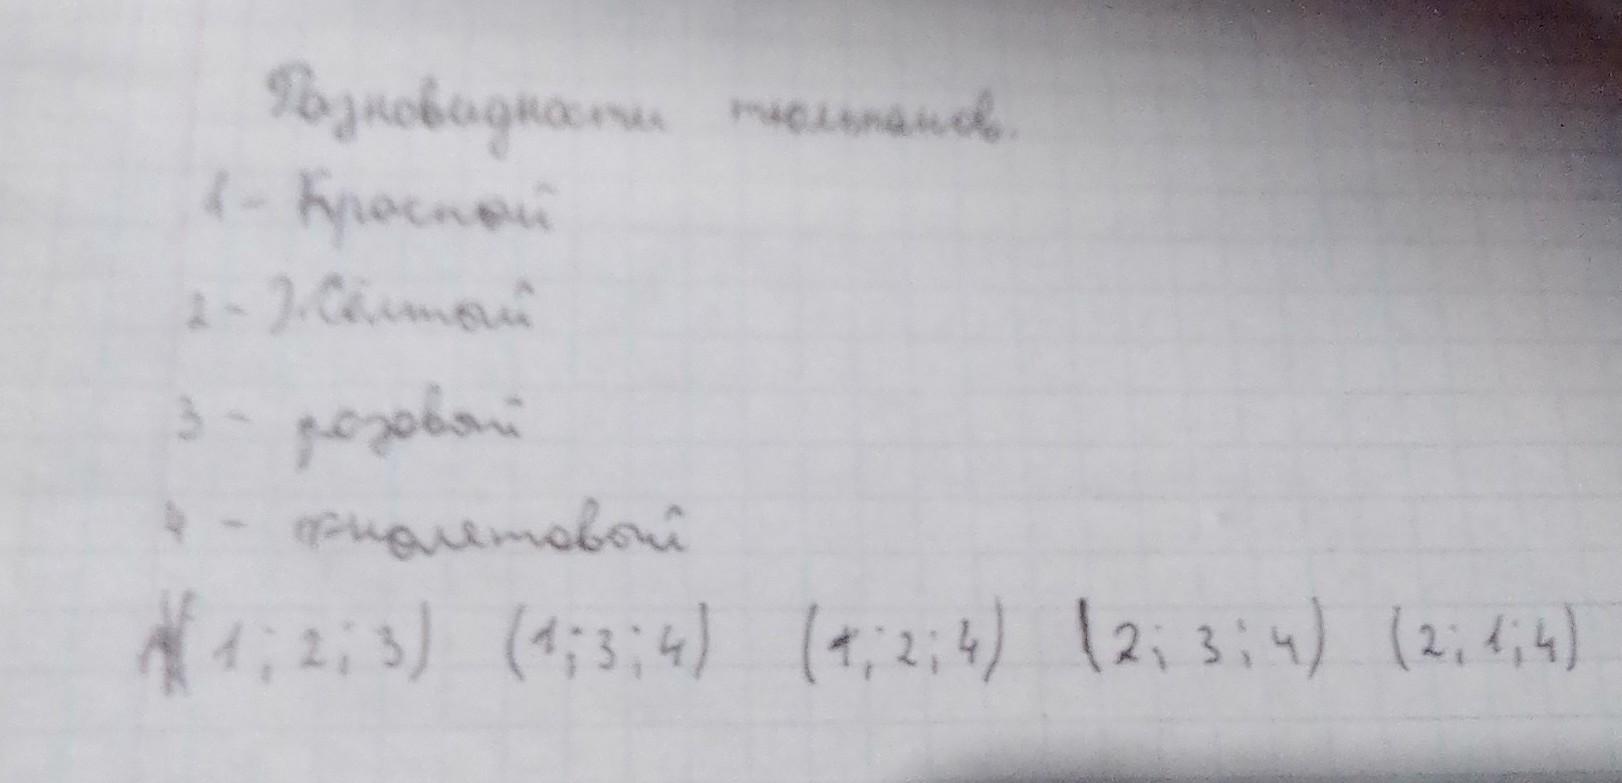 Разновидности тюльпанов.
1 - Красный
2 - Жёлтый
3 - розовый
4 - фиолетовый
(1; 2; 3) (1; 3; 4) (1; 2; 4) (2; 3; 4) (2; 1; 4)